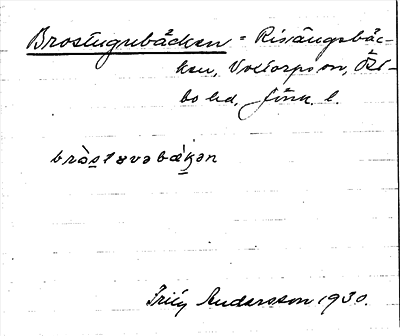 Brostugubäcken = Risängsbäc-
ken, Voxtorps sn, Öst-
bo hd, Jönk. l.
bròstʉvəbækən
Frity Andersson 1930.